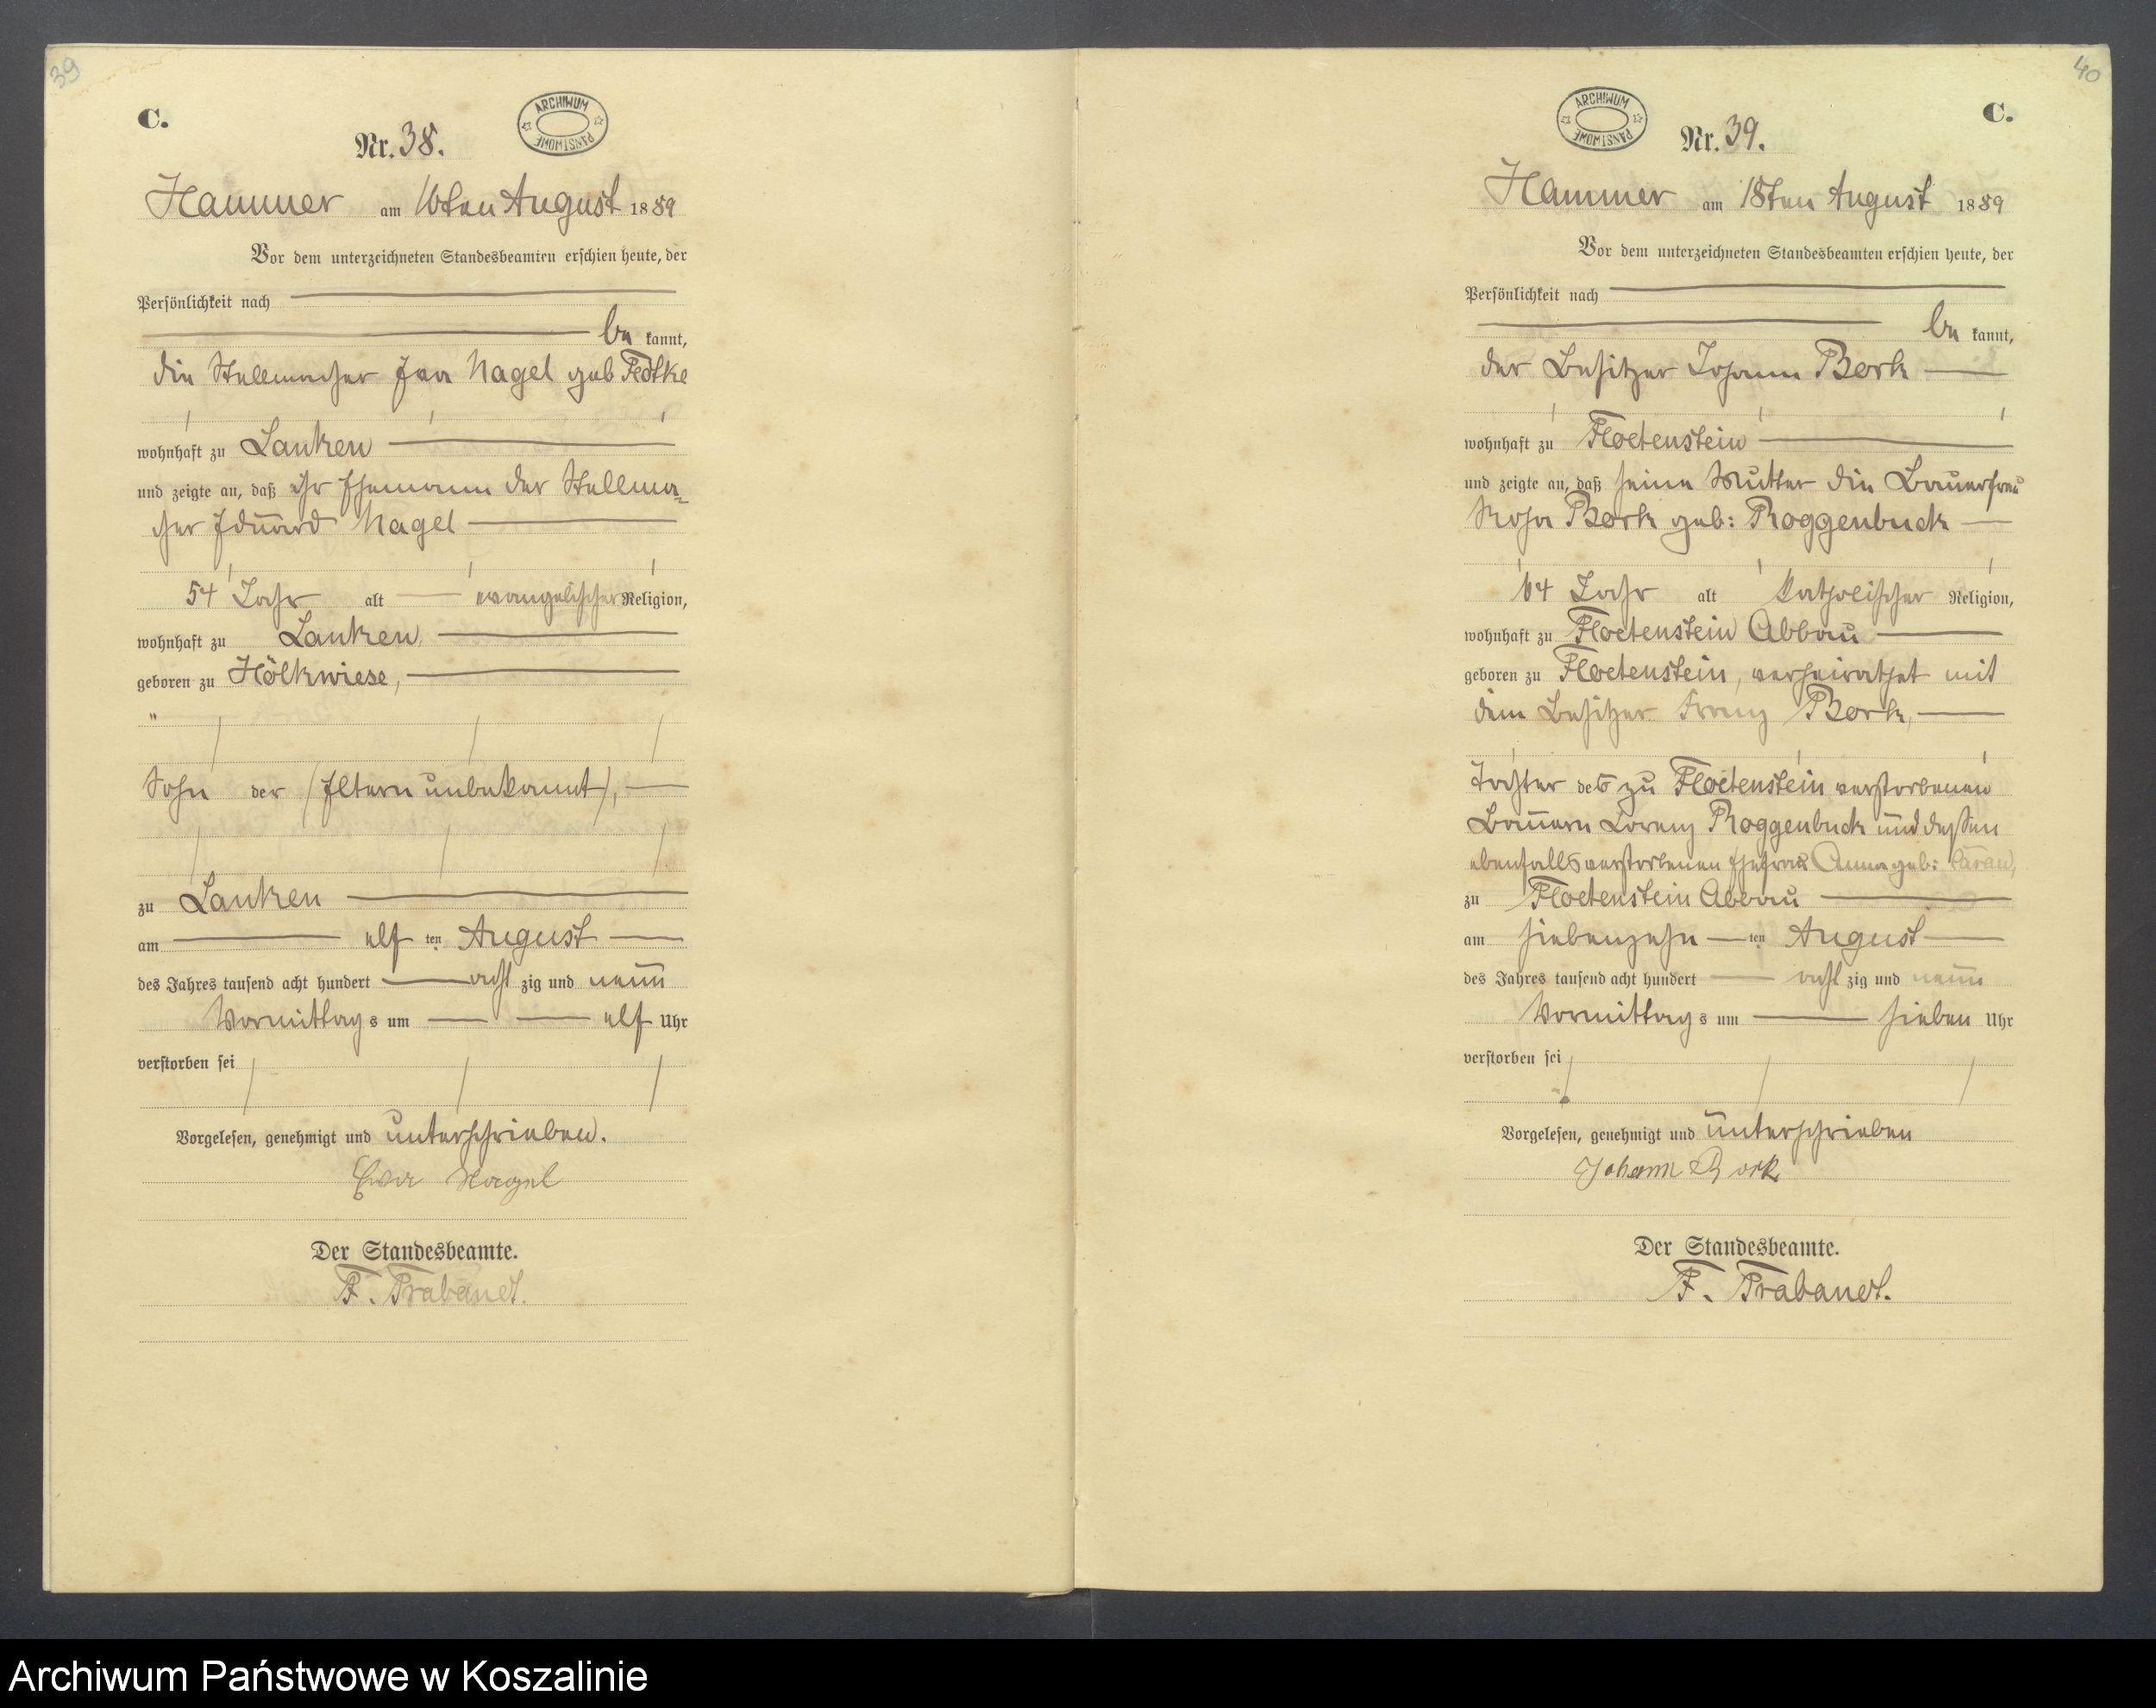 39
C.
Nr. 38.
ARCHIWUM PAŃSTWOWE
Hammer am 16ten August 1889
Vor dem unterzeichneten Standesbeamten erschien heute, der
Persönlichkeit nach
be kannt,
die Stellmacher Eva Nagel geb
wohnhaft zu Lanken
und zeigte an, daß ihr Ehemann der Stellma=
cher Eduard Nagel
54 Jahr alt evangelischer Religion,
wohnhaft zu Lanken
geboren zu Hölkwiese,
"
Sohn der (Eltern unbekannt),
zu Lanken
am elf ten August
des Jahres tausend acht hundert acht zig und neun
Vormittag s um elf Uhr
verstorben sei
Vorgelesen, genehmigt und unterschrieben.
Eva Nagel
Der Standesbeamte.
F. Trabandt.
40
C.
ARCHIWUM PAŃSTWOWE
Nr. 39.
Hammer am 18ten August 1889
Vor dem unterzeichneten Standesbeamten erschien heute, der
Persönlichkeit nach
be kannt,
der Besitzer Johann Bork
wohnhaft zu Floetenstein
und zeigte an, daß seine Mutter die Bauerfrau
Rosa Bork geb: Roggenbuck
64 Jahr alt katholischer Religion,
wohnhaft zu Floetenstein Abbau
geboren zu Floetenstein, verheirathet mit
dem Besitzer Franz Bork,
Tochter des zu Floetenstein verstorbenen
Bauern Lorenz Roggenbuck und dessen
ebenfalls verstorbenen Ehefrau Anna geb:
zu Floetenstein Abbau
am siebenzehn ten August
des Jahres tausend acht hundert acht zig und neun
Vormittag s um sieben Uhr
verstorben sei
Vorgelesen, genehmigt und unterschrieben
Johann Bork
Der Standesbeamte.
F. Trabandt.
Archiwum Państwowe w Koszalinie